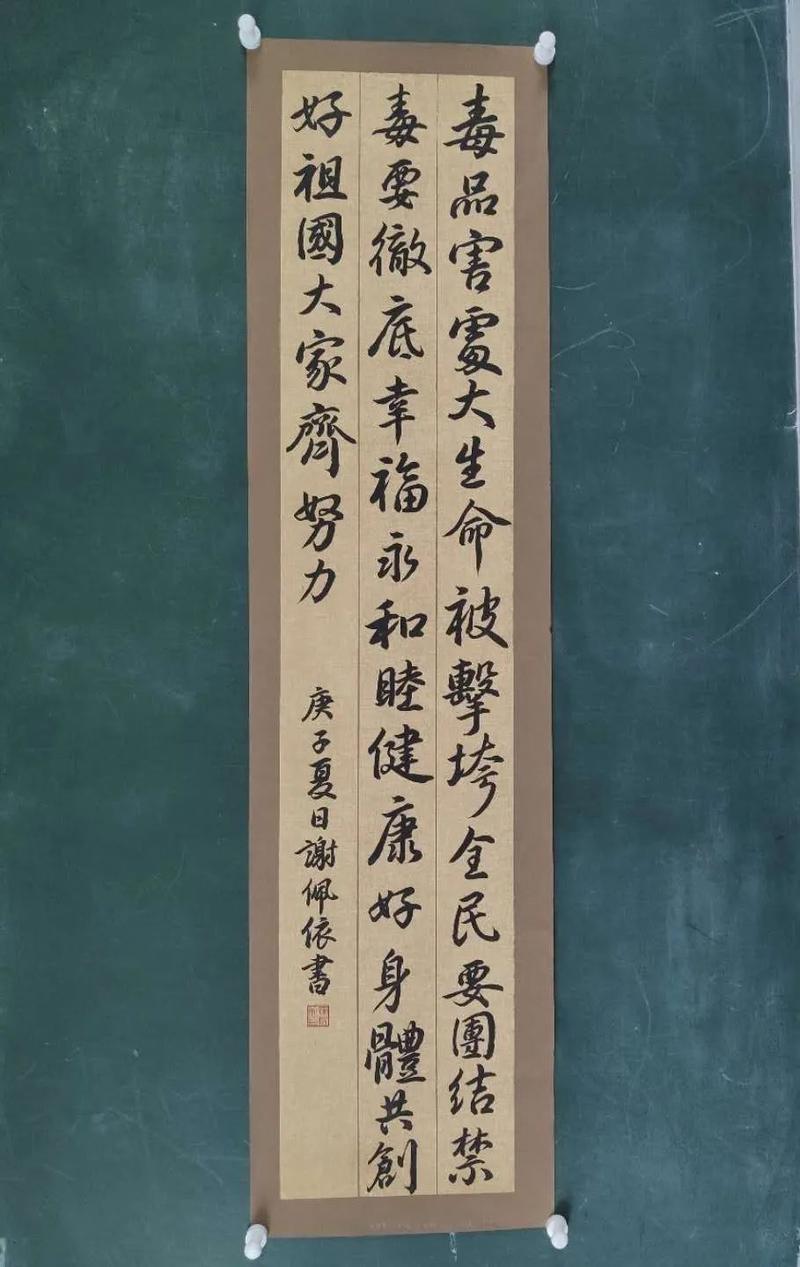 毒品害處大生命被擊垮全民要團结禁
毒要徹底幸福永和睦健康好身體共創
好祖國大家齊努力
庚子夏日謝佩依書